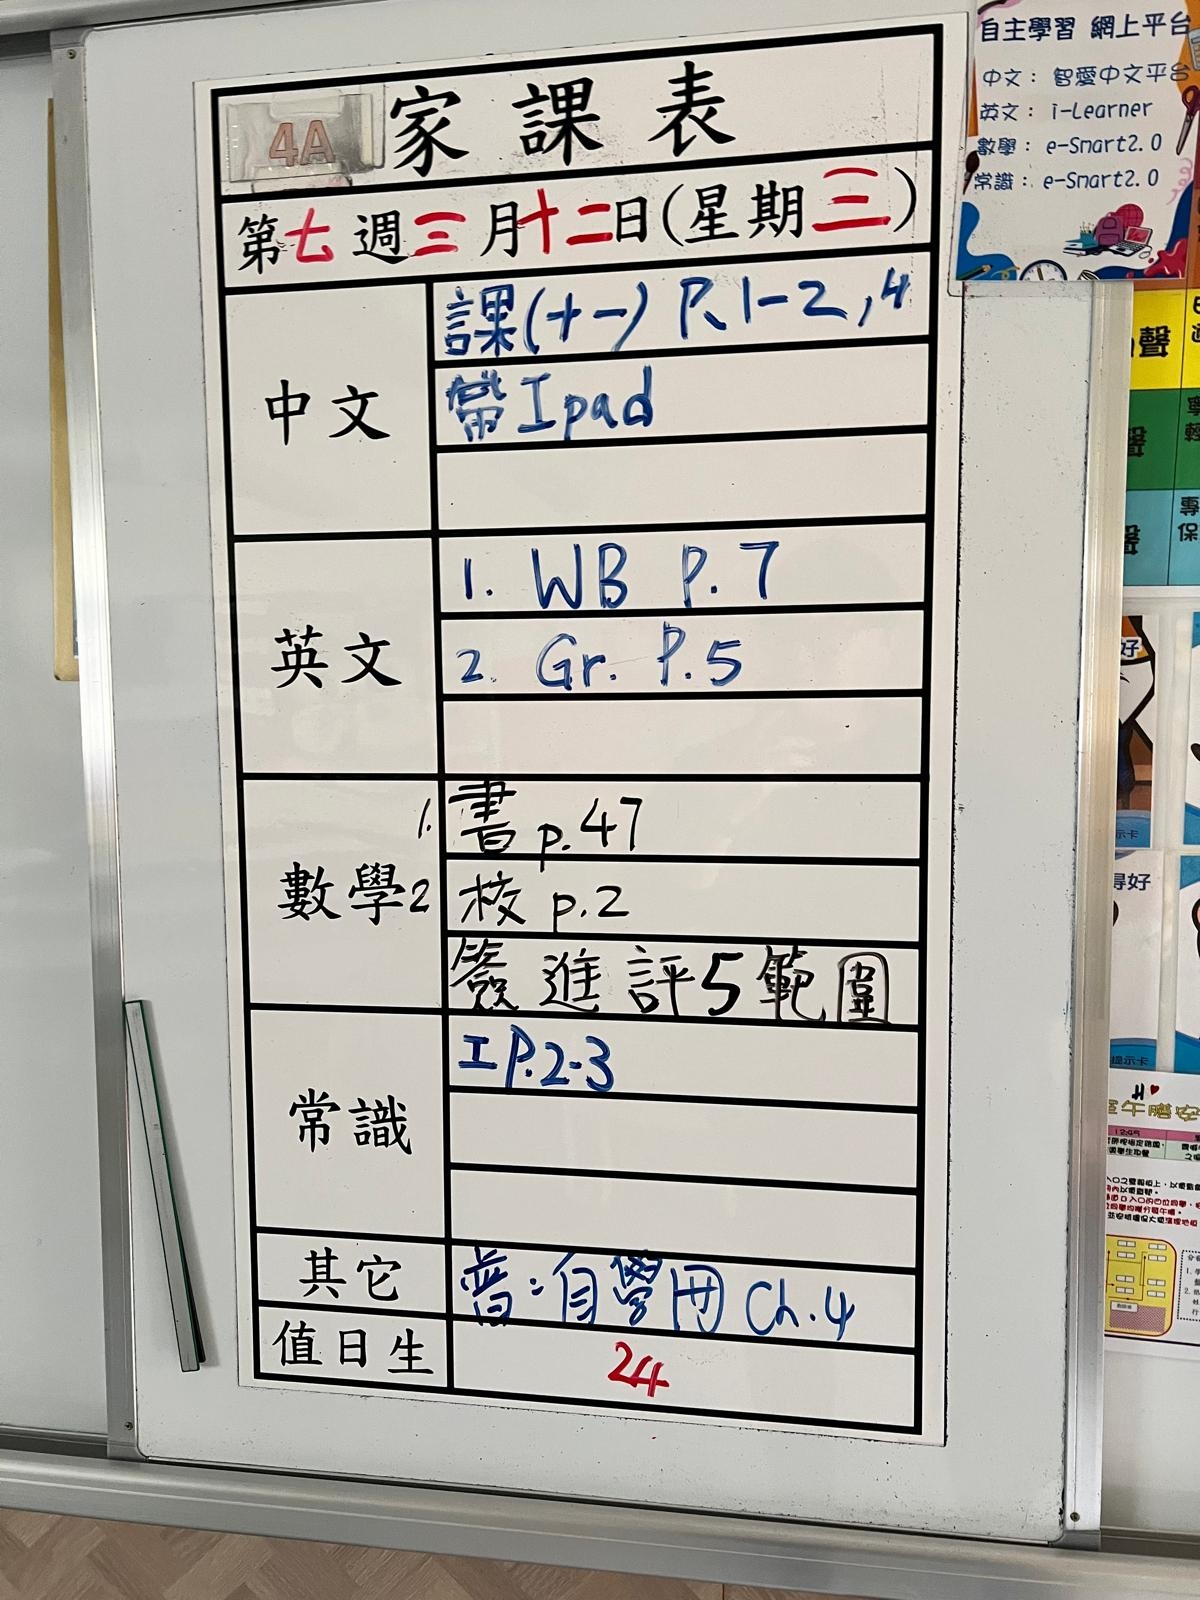 4A 家課表
第七週三月十二日(星期三)
中文
課(十一) P.1-2,4
帶Ipad
英文
1. WB P.7
2. Gr. P.5
數學
1. 書 p.47
2 校 p.2
簽進評5範圍
常識
工P.2-3
其它
普:自學冊 Ch.4
值日生
24
自主學習 網上平台
中文: 智愛中文平台
英文: i-Learner
數學: e-Smart2.0
常識: e-Smart2.0
聲
聲
好
示卡
得好
提示卡
12:45